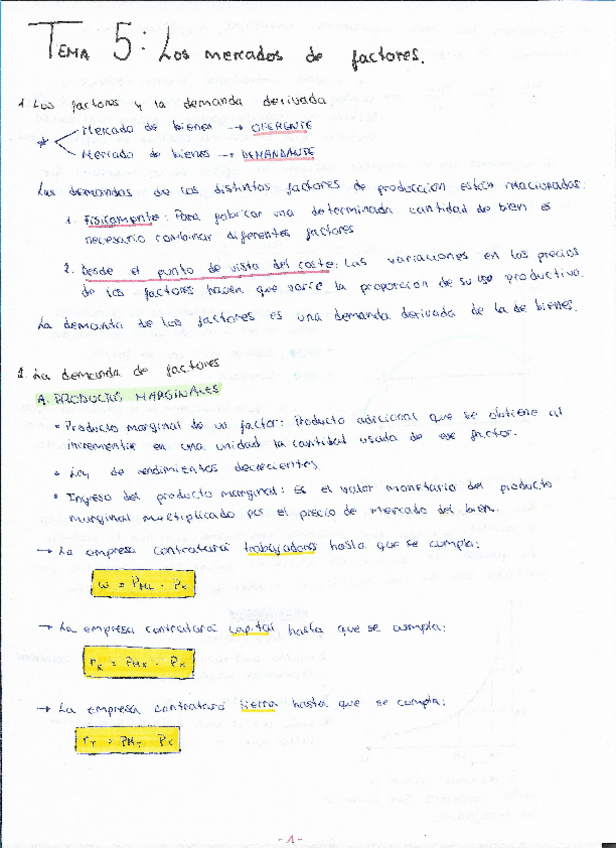 TEMA 5: Los mercados de factores.
1. Los factores y la demanda derivada
* Mercado de bienes → OFERENTE
Mercado de bienes → DEMANDANTE
Las demandas de los distintos factores de producción están relacionadas:
1. Físicamente: Para fabricar una determinada cantidad de bien es
necesario combinar diferentes factores
2. Desde el punto de vista del coste: Las variaciones en los precios
de los factores hacen que varíe la proporción de su uso productivo.
La demanda de los factores es una demanda derivada de la de bienes.
2. La demanda de factores
A. PRODUCTOS MARGINALES
• Producto marginal de un factor: Producto adicional que se obtiene al
incrementar en una unidad la cantidad usada de ese factor.
• Ley de rendimientos decrecientes
• Ingreso del producto marginal: Es el valor monetario del producto
marginal multiplicado por el precio de mercado del bien.
→ La empresa contratará trabajadores hasta que se cumpla:
w = PML · Px
→ La empresa contratará capital hasta que se cumpla:
rK = PMK · Px
→ La empresa contratará tierra hasta que se cumpla:
rT = PMT · Px
- 1 -